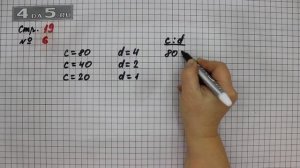 4DA5.RU
стр. 19
№ 6
c = 80 d = 4 c : d
c = 40 d = 2 80
c = 20 d = 1